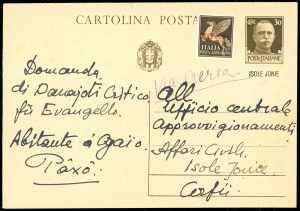 CARTOLINA POSTA
ITALIA
30
POSTE ITALIANE
ISOLE JONIE
via aerea
Domanda
di Panajoti Critico
fù Evangello.
Abitante a Gaio
Paxò.
All
Ufficio centrale
Approvvigionamenti
Affari Civili
Isole Jonie
Corfù